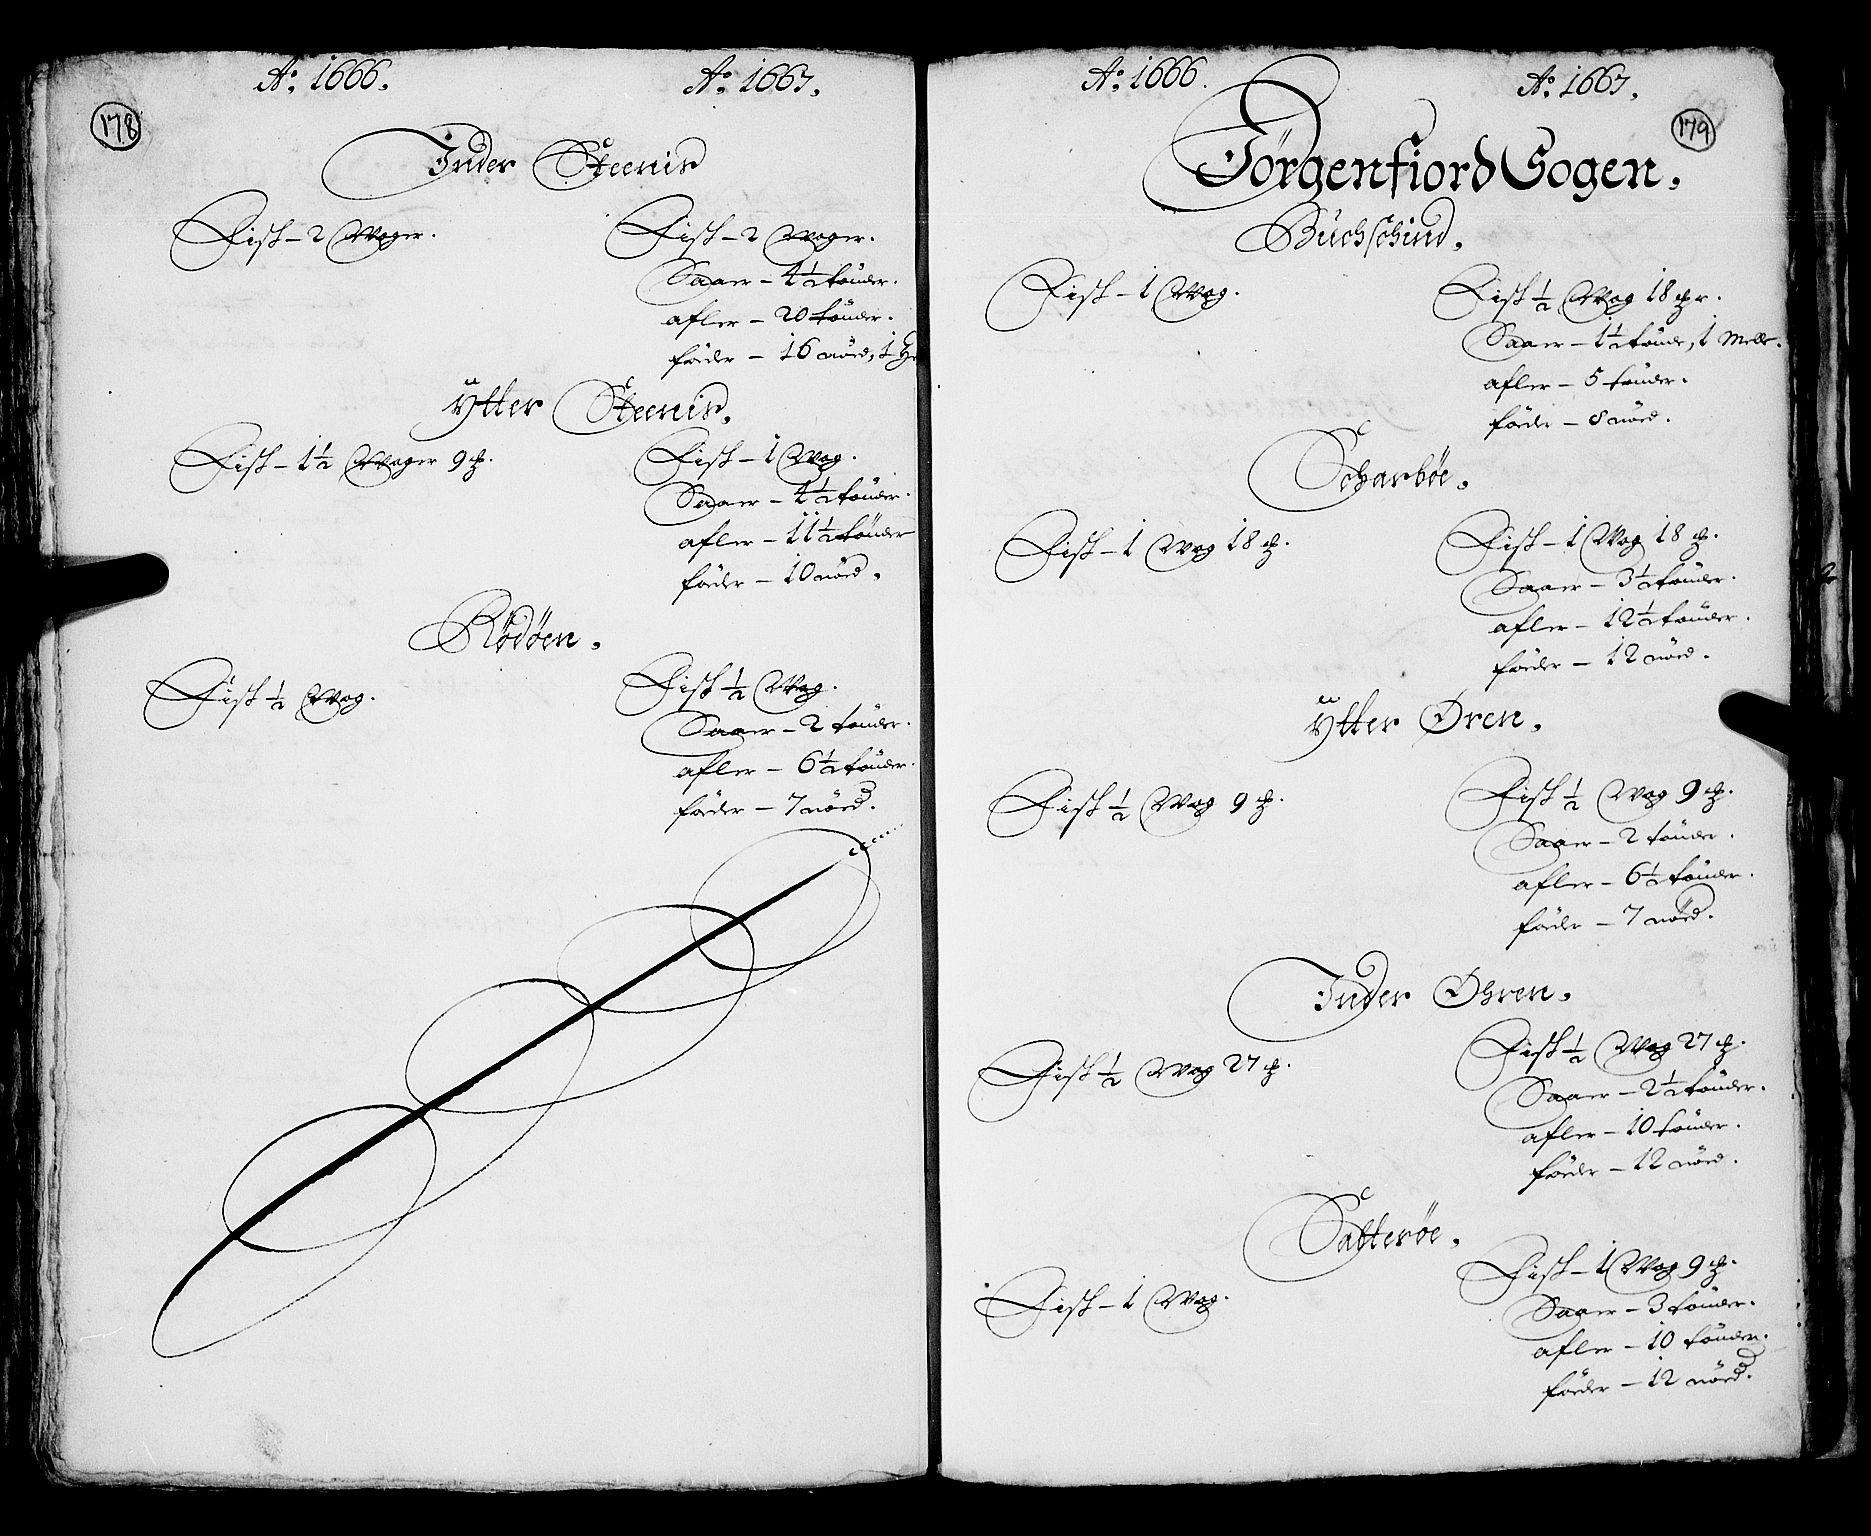 178
Ao. 1666.
Ao. 1667.
Inder Steenis
Fisk – 2 Woger.
Fisk – 2 Woger.
Saaer – 4½ tönder.
afler – 20 tönder.
föder – 16 nöed, 1
Ytter Steenis.
Fisk – 1½ Woger 9 ℔.
Fisk – 1 Wog.
Saaer – 4½ tönder.
afler – 11½ tönder
föder – 10 nöed.
Rödöen.
Fisk ½ Wog.
Fisk ½ Wog.
Saaer – 2 tönder.
afler – 6½ tönder.
föder – 7 nöed.
179
Ao. 1666.
Ao. 1667.
Jörgenfiord Sogen.
Buchschind.
Fisk – 1 Wog.
Fisk ½ Wog 18 ℔r.
Saaer – 1½ tönde, 1 Mele.
afler – 5 tönder.
föder – 8 nöed.
Scharböe.
Fisk – 1 Wog 18 ℔.
Fisk – 1 Wog 18 ℔.
Saaer – 3½ tönder.
afler – 12½ tönder.
föder – 12 nöed.
Ytter Øren.
Fisk ½ Wog 9 ℔.
Fisk ½ Wog 9 ℔.
Saaer – 2 tönder.
afler – 6½ tönder.
föder – 7 nöed.
Inder Øhren.
Fisk ½ Wog 27 ℔.
Fisk ½ Wog 27 ℔.
Saaer – 2½ tönder.
afler – 10 tönder.
föder – 12 nöed.
Satteröe.
Fisk – 1 Wog.
Fisk – 1 Wog 9 ℔.
Saaer – 3 tönder.
afler – 10 tönder.
föder – 12 nöed.